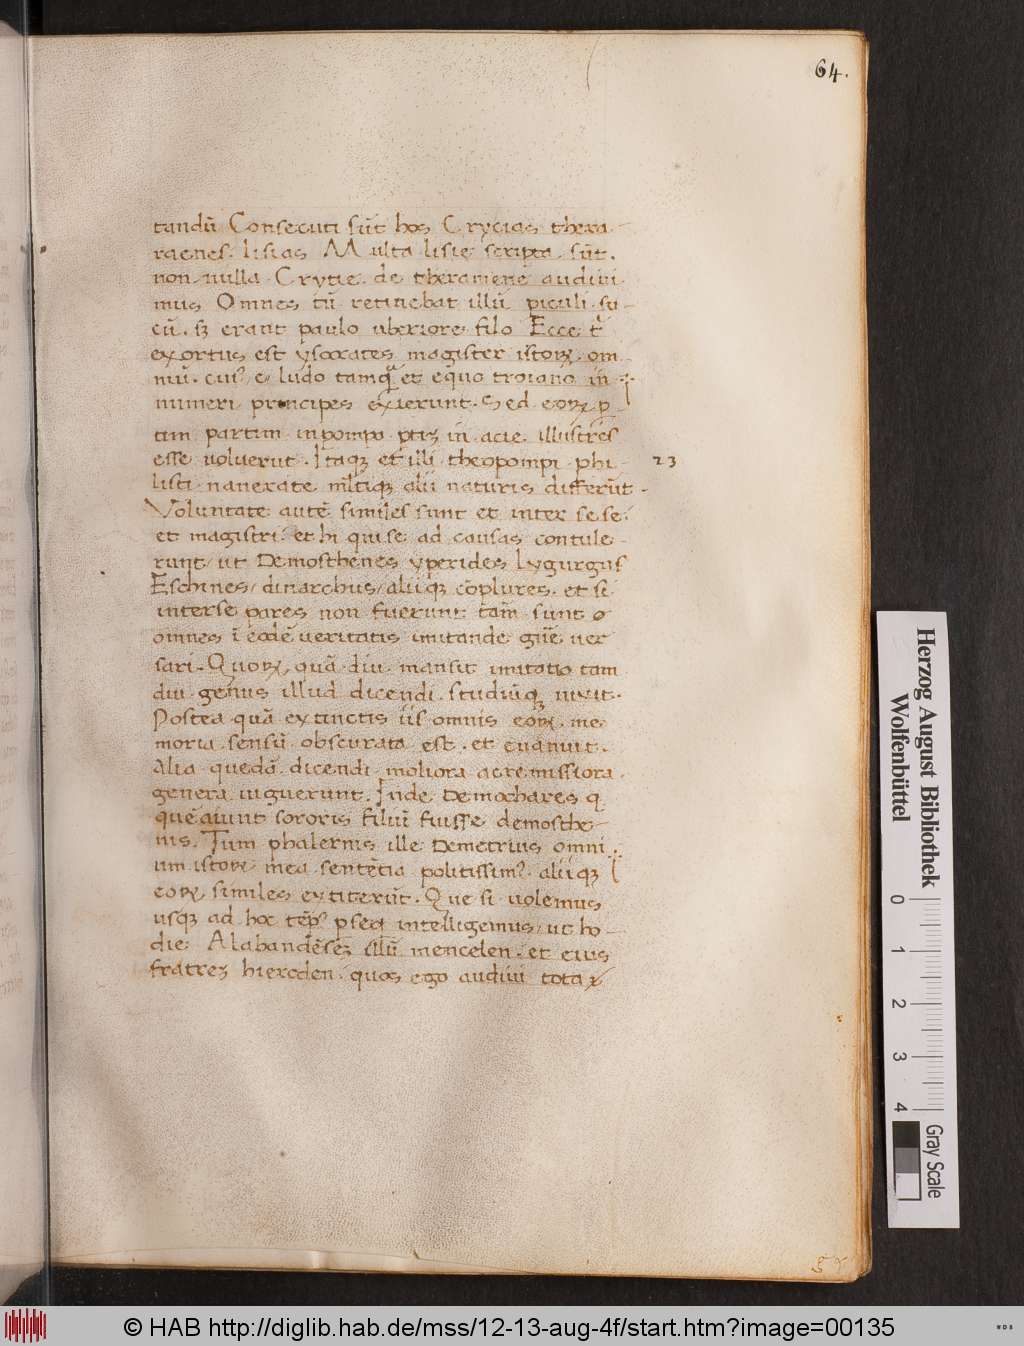 64.
tandū Consecuti sūt hos Crycias thera
raenes. lisias Multa lisie scripta sūt.
non nulla Crytie de theramene audivi
mus Omnes tū retinebat illū piculi su
cū. sꝫ erant paulo uberiore filo Ecce t
exortus est ysocrates magister istoꝝ om
niū. cuiꝰ e ludo tamq̄ et equo troiano in
numeri principes exierunt. Sed eoꝝ p
tim partim inpompa ptiꝫ in acie illustres
esse voluerut. Itaqꝫ et illi theopompi phi
23
listi nanexate ml̄tiqꝫ alii naturis differūt.
Voluntate autē similes sunt et inter sese.
et magistri. et hi quise ad causas contule
runt/ ut Demosthenes yperides Lygurgus
Eschines/ dinarchus/ aliiqꝫ cōplures. et si
interse pares non fuerunt tam̄ sunt
omnes ī eodē veritatis imitande gn̄e ver
sari. Quoꝝ, quā diu mansit imitatio tam
diu genus illud dicendi studiūqꝫ vixit.
Postea quā extinctis iis omnis eoꝝ me
moria sensū obscurata est. et evanuit.
Alia quedā dicendi moliora acremissiora
genera viguerunt. Inde Demochares q
quē aiunt sororis filiū fuisse demosthe
nis. Tum phalernis ille Demetrius omni
um istoꝝ mea sentētia politissimꝰ aliiqꝫ
eoꝝ similes extiterūt. Que si volemus
usqꝫ ad hoc tēpꝰ pseq intelligemus/ ut ho
die Alabandēseꝫ illū mencelen. et eius
fratreꝫ hieroden. quos ego audivi tota
Herzog August Bibliothek
Wolfenbüttel
0 1 2 3 4
Gray Scale
© HAB http://diglib.hab.de/mss/12-13-aug-4f/start.htm?image=00135